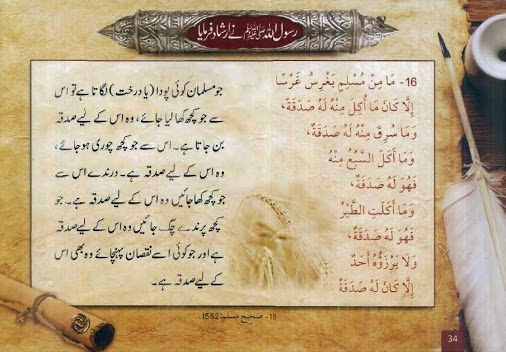 رسول اللہ ﷺ نے ارشاد فرمایا
16- مَا مِنْ مُسْلِمٍ يَغْرِسُ غَرْسًا
إِلَّا كَانَ مَا أُكِلَ مِنْهُ لَهُ صَدَقَةً،
وَمَا سُرِقَ مِنْهُ لَهُ صَدَقَةٌ،
وَمَا أَكَلَ السَّبُعُ مِنْهُ
فَهُوَ لَهُ صَدَقَةٌ،
وَمَا أَكَلَتِ الطَّيْرُ
فَهُوَ لَهُ صَدَقَةٌ،
وَلَا يَرْزَؤُهُ أَحَدٌ
إِلَّا كَانَ لَهُ صَدَقَةٌ
جو مسلمان کوئی پودا (یا درخت) لگاتا ہے تو اس
سے جو کچھ کھا لیا جائے، وہ اس کے لیے صدقہ
بن جاتا ہے۔ اس سے جو کچھ چوری ہو جائے،
وہ اس کے لیے صدقہ ہے۔ درندے اس سے
جو کچھ کھا جائیں وہ اس کے لیے صدقہ ہے۔ جو
کچھ پرندے چگ جائیں وہ اس کے لیے صدقہ
ہے اور جو کوئی اسے نقصان پہنچائے وہ بھی اس
کے لیے صدقہ ہے۔
16- صحیح مسلم: 1552
34